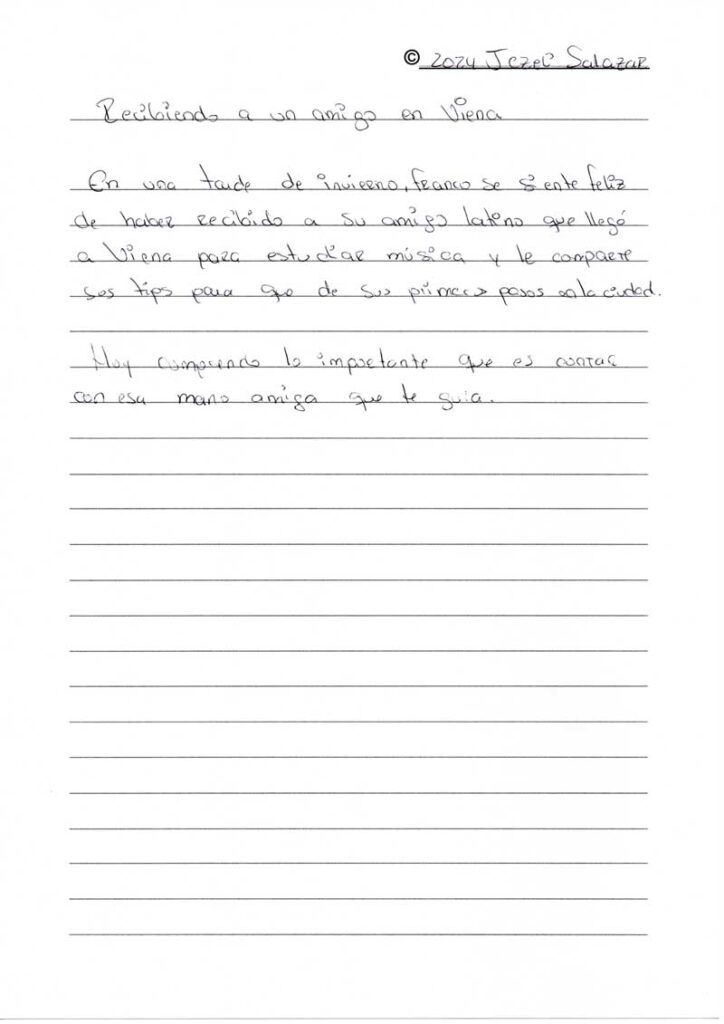 © 2024 Jezeł Salazar
Recibiendo a un amigo en Viena
En una tarde de invierno, Franco se siente feliz
de haber recibido a su amigo latino que llegó
a Viena para estudiar música y le comparte
sus tips para que de sus primeros pasos en la ciudad.
Hoy comprendo lo importante que es contar
con esa mano amiga que te guia.